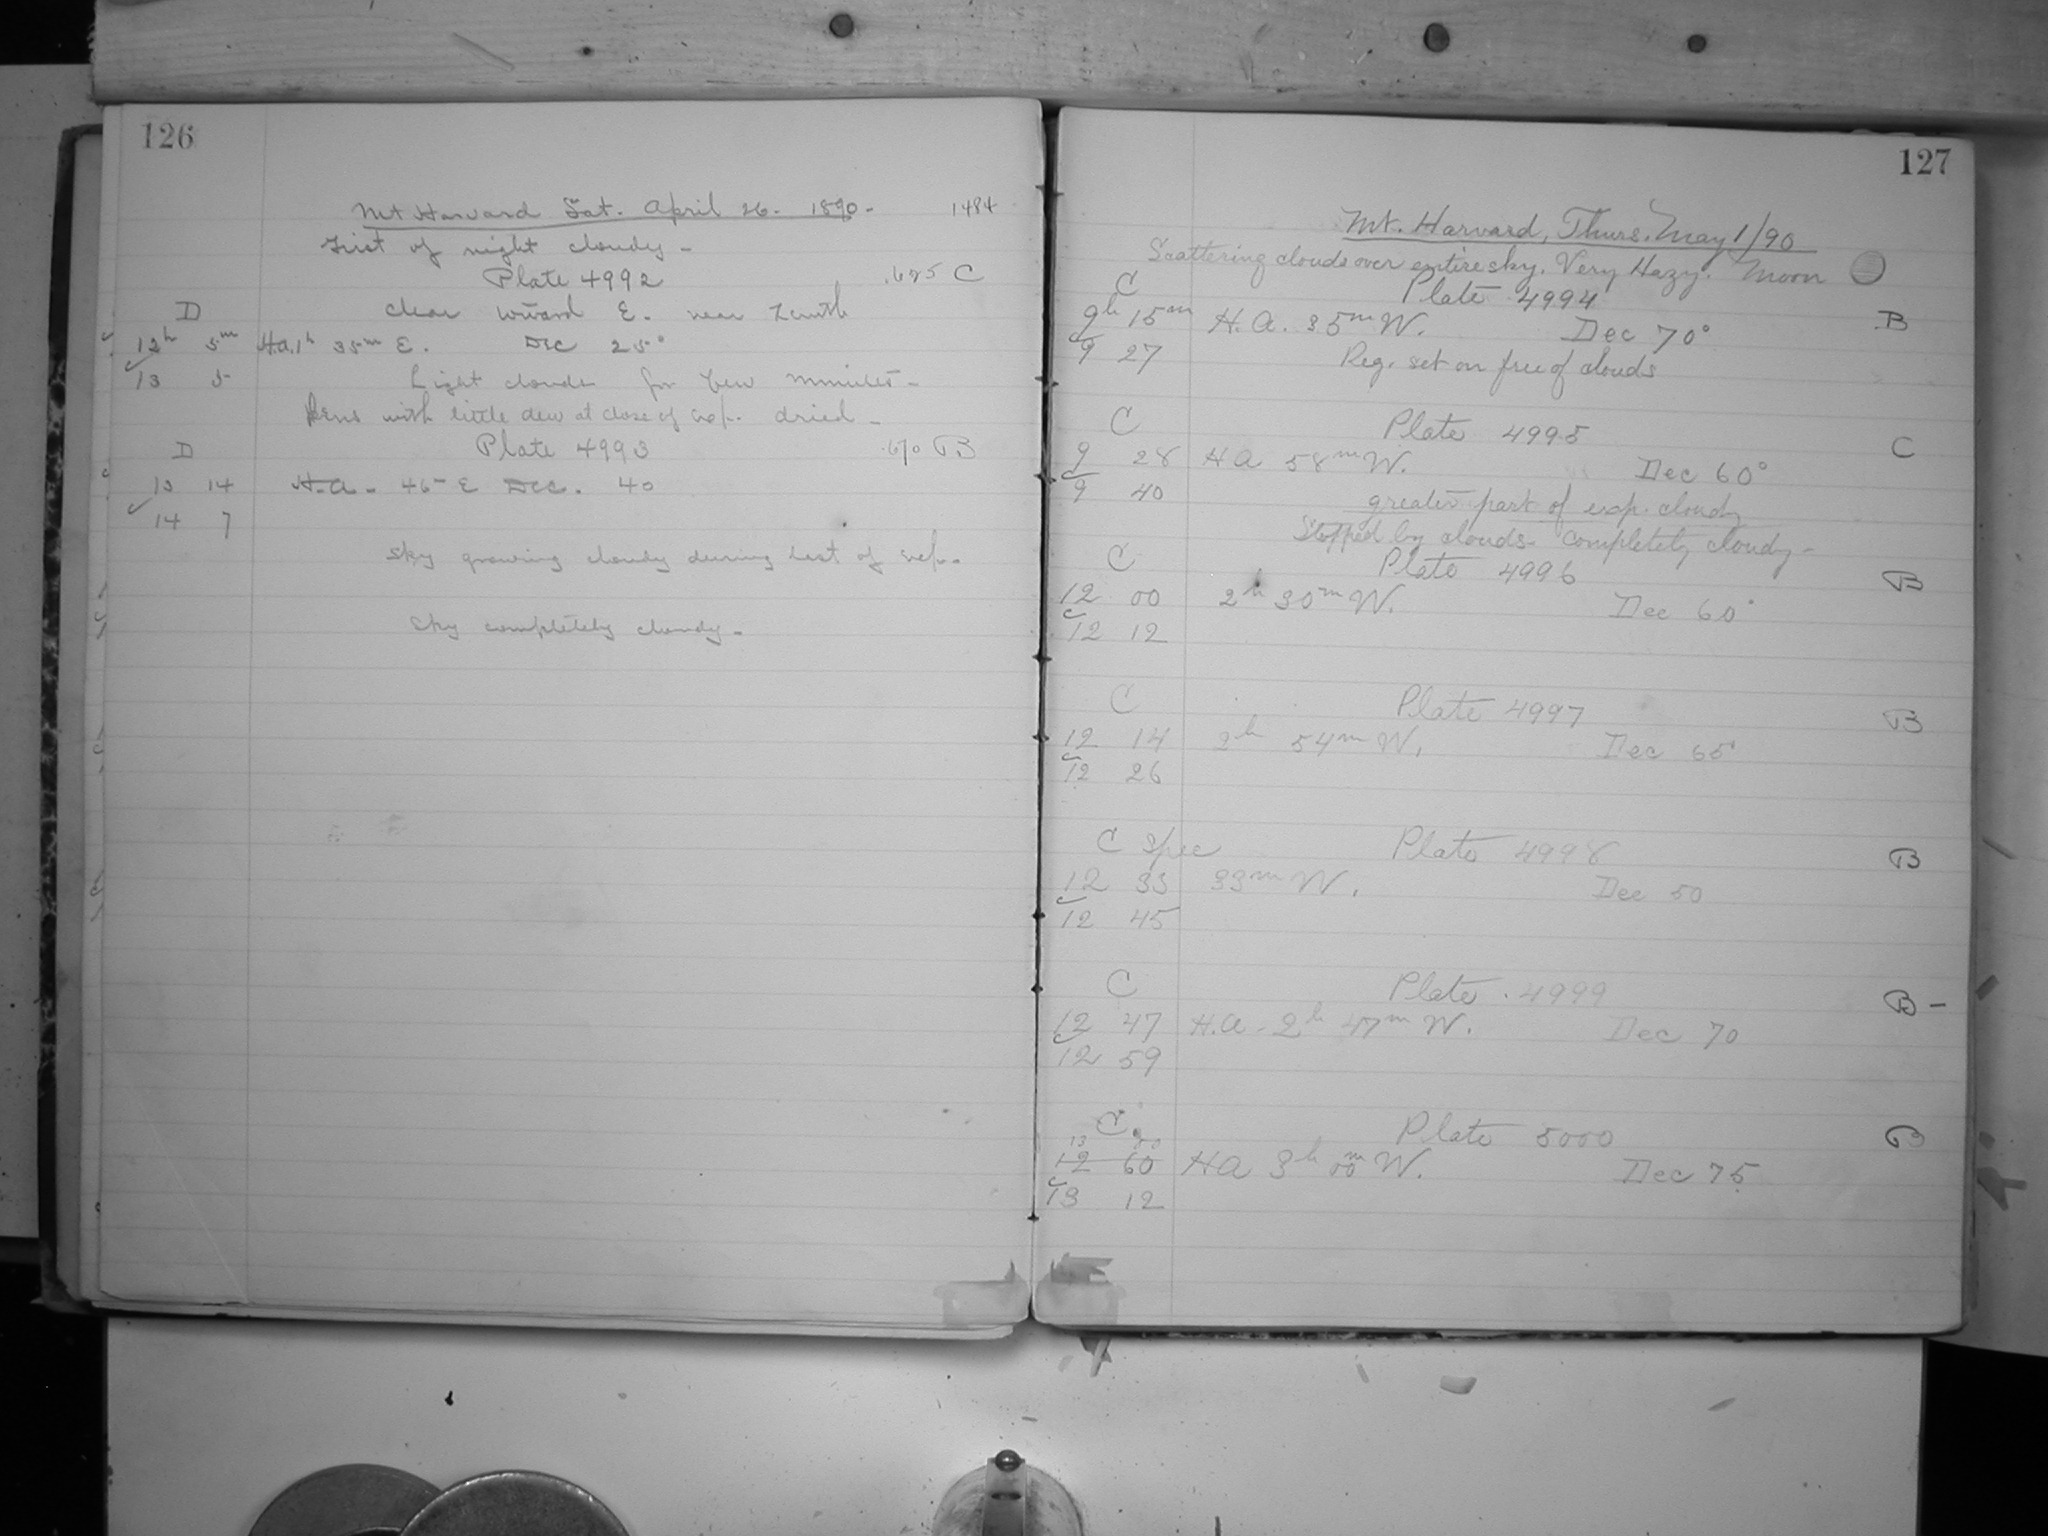 126
Mt Harvard Sat. April 26. 1890. 1484
First of night cloudy
Plate 4992 .625 C
D clear toward E. near Zenith
12h 5m H.A. 1h 35m E. Dec 25°
13 5 Light clouds for few minutes
Lens with little dew at close of exp. dried
D Plate 4993 .670 B
13 14 H.A. 46m E Dec. 40
14 7
Sky growing cloudy during last of exp.
Sky completely cloudy
127
Mt. Harvard, Thurs. May 1/90
Scattering clouds over entire sky. Very Hazy. Moon
C Plate 4994 B
9h 15m H.A. 35m W. Dec 70°
9 27 Reg. set on free of clouds
C Plate 4995 C
9 28 HA 58m W. Dec 60°
9 40 greater part of exp. cloudy
Stopped by clouds. completely cloudy
C Plate 4996 B
12 00 2h 30m W. Dec 60°
12 12
C Plate 4997 B
12 14 2h 54m W. Dec 65°
12 26
C Spec Plate 4998 B
12 33 33m W. Dec 50
12 45
C Plate 4999 B -
12 47 H.A. 2h 47m W. Dec 70
12 59
C. Plate 5000 B
13 00
12 60 HA 3h 00m W. Dec 75
13 12